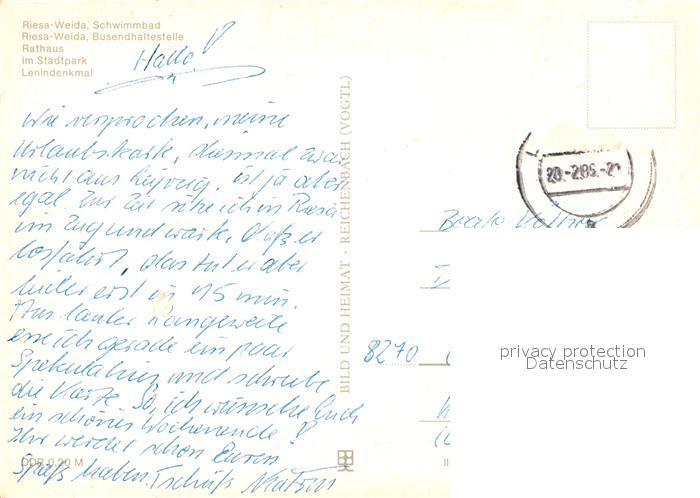 Riesa-Weida, Schwimmbad
Riesa-Weida, Busendhaltestelle
Rathaus
Im Stadtpark
Lenindenkmal
Hallo!
Wie versprochen, meine
Urlaubskarte, diesmal zwar
nicht aus Leipzig, ist ja aber
egal. Zur Zeit sitze ich in Riesa
im Zug und warte, daß er
losfährt, das tut er aber
leider erst in 15 min.
Aus lauter Langeweile
esse ich gerade ein paar
Spekulatius und schreibe
die Karte. So, ich wünsche Euch
ein schönes Wochenende!
Ihr werdet schon Euren
Spaß haben. Tschüß Katrin
DDR 0,20 M
BILD UND HEIMAT · REICHENBACH (VOGTL)
20.-2.85.-2
Beate
8270
privacy protection
Datenschutz
II